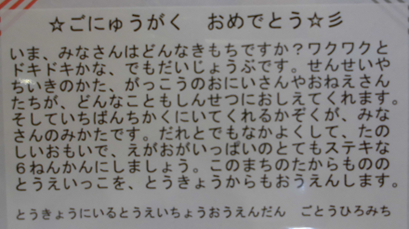 ☆ごにゅうがく　おめでとう☆彡
いま、みなさんはどんなきもちですか？ワクワクと
ドキドキかな、でもだいじょうぶです。せんせいや
ちいきのかた、がっこうのおにいさんやおねえさん
たちが、どんなこともしんせつにおしえてくれます。
そしていちばんちかくにいてくれるかぞくが、みな
さんのみかたです。だれとでもなかよくして、たの
しいおもいで、えがおがいっぱいのとてもステキな
６ねんかんにしましょう。このまちのたからものの
とうえいっこを、とうきょうからもおうえんします。
とうきょうにいるとうえいちょうおうえんだん　ごとうひろみち